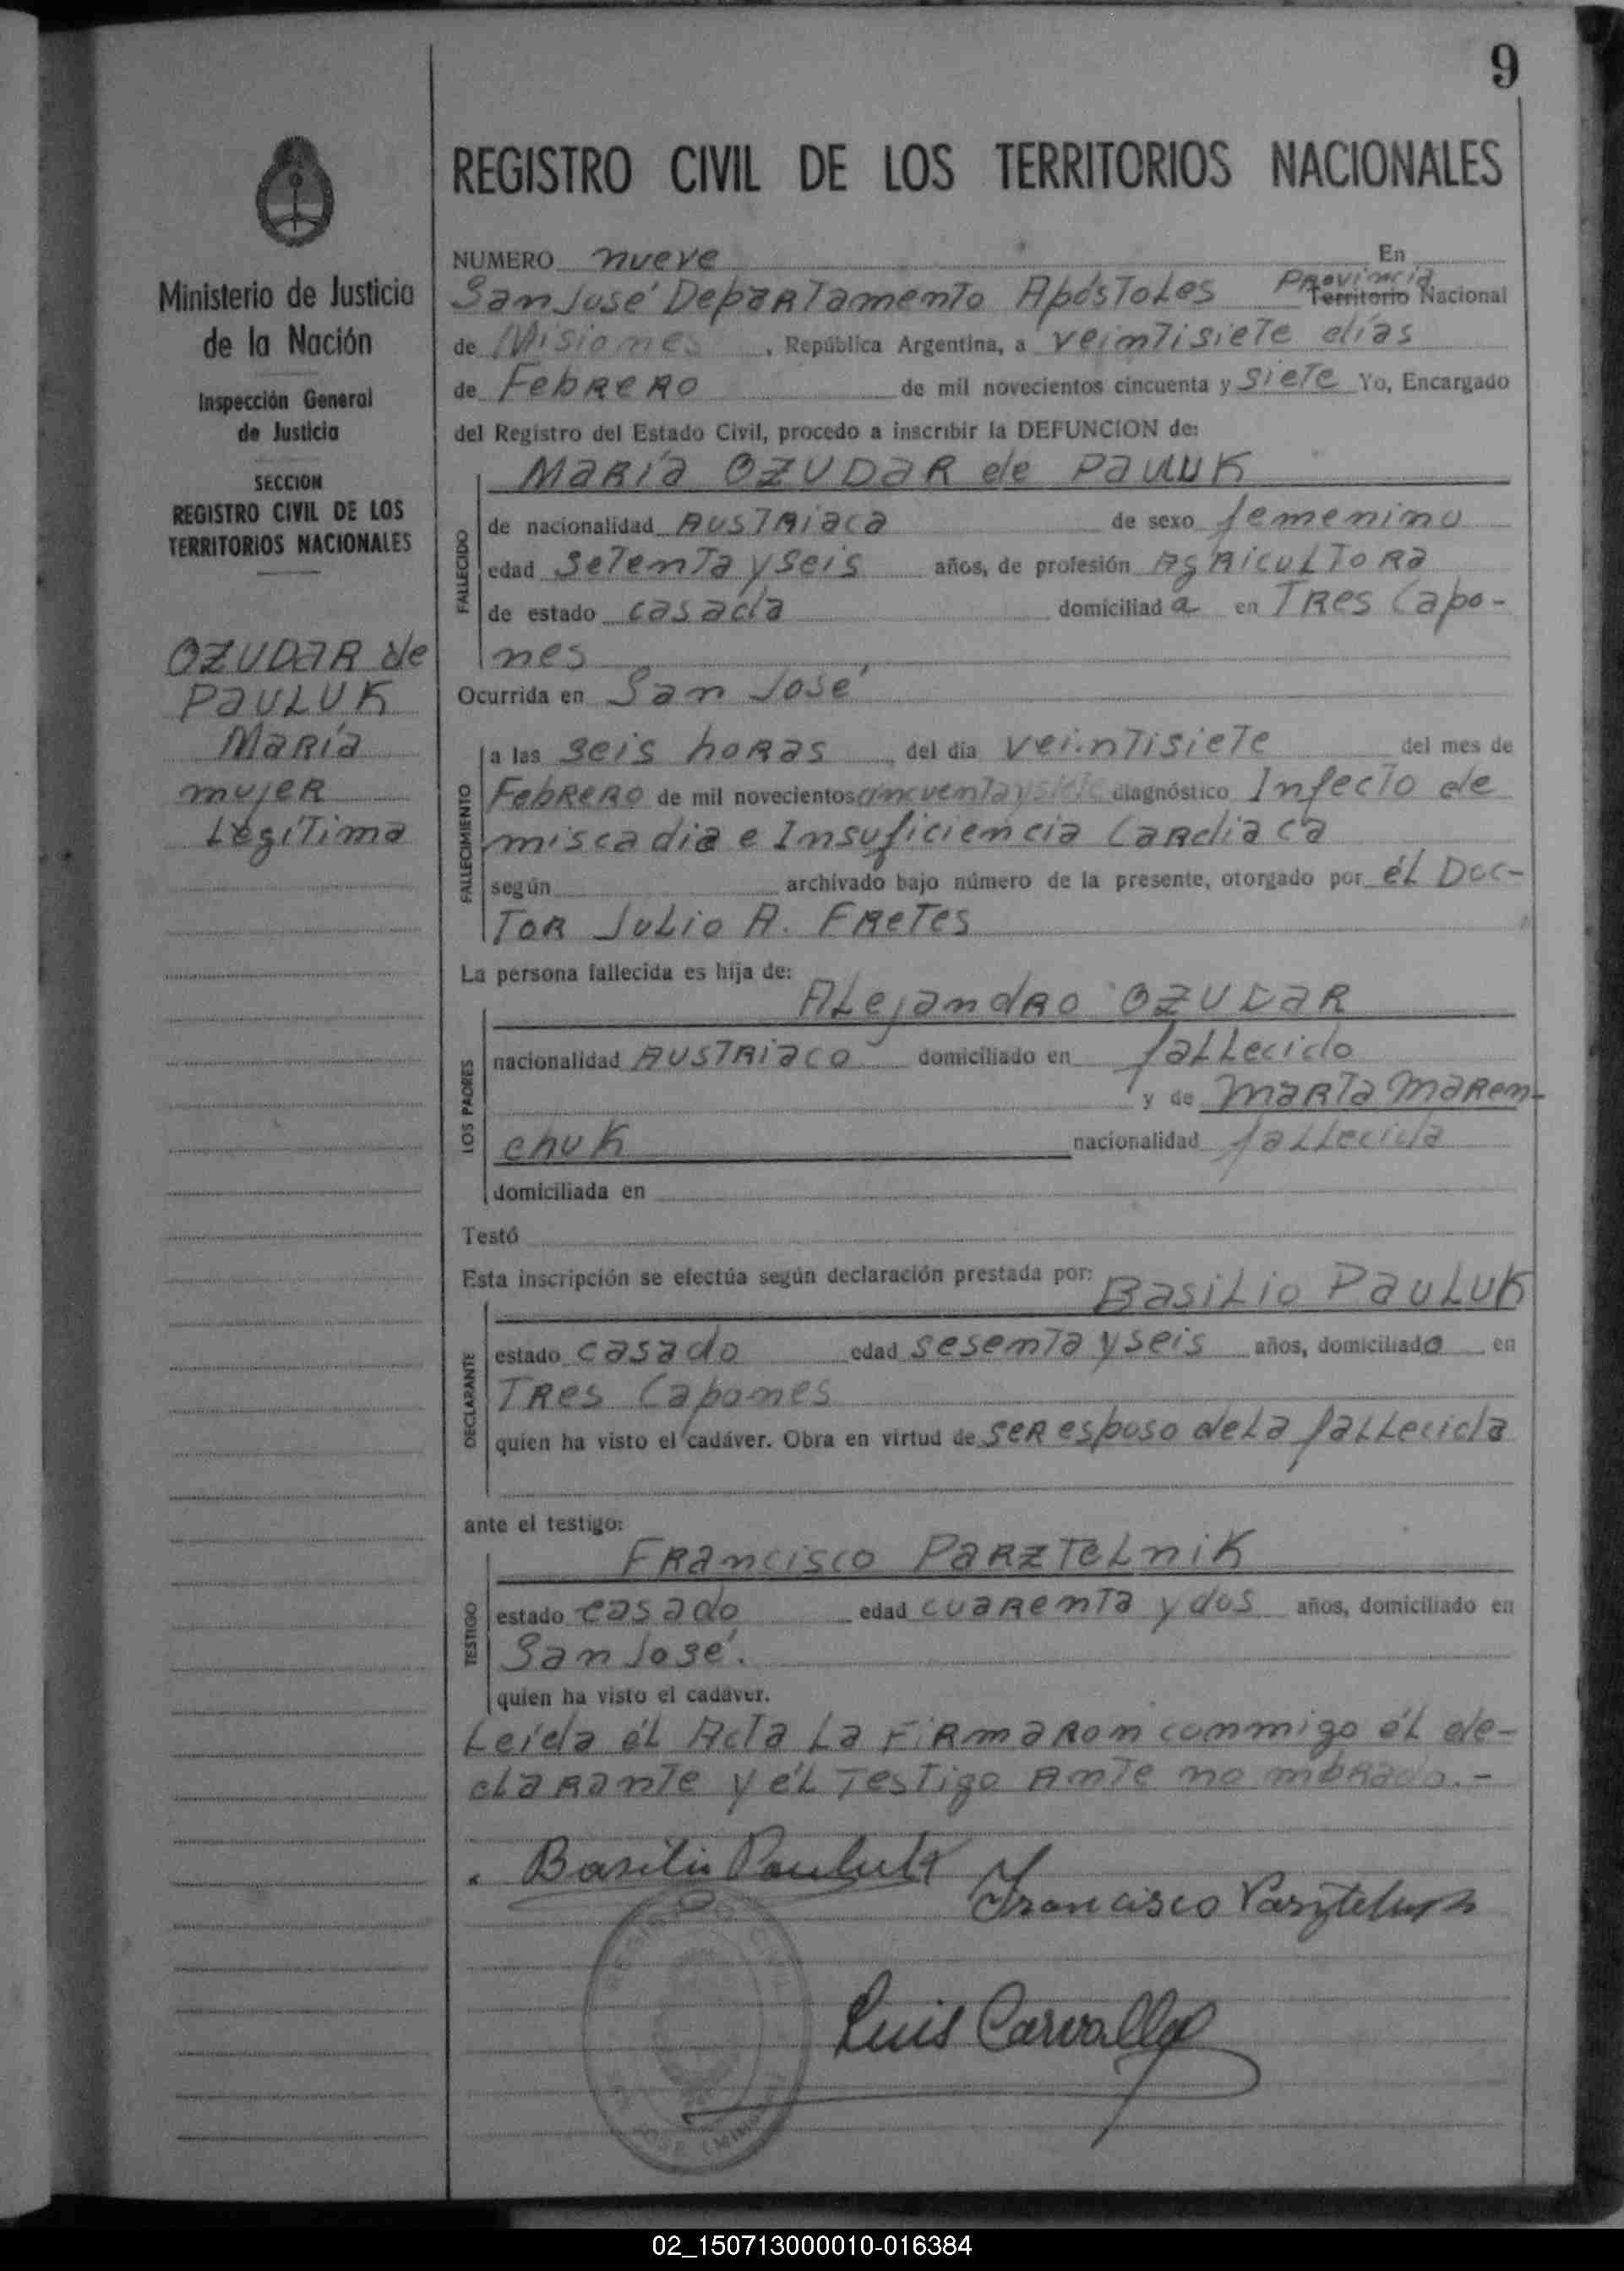 9
REGISTRO CIVIL DE LOS TERRITORIOS NACIONALES
Ministerio de Justicia
de la Nación
Inspección General
de Justicia
SECCION
REGISTRO CIVIL DE LOS
TERRITORIOS NACIONALES
OZUDAR de
PAULUK
María
mujer
Legítima
NUMERO nueve En
San José Departamento Apóstoles Provincia Territorio Nacional
de Misiones, República Argentina, a veintisiete días
de Febrero de mil novecientos cincuenta y siete Yo, Encargado
del Registro del Estado Civil, procedo a inscribir la DEFUNCION de:
María OZUDAR de PAULUK
FALLECIDO
de nacionalidad Austriaca de sexo femenino
edad setenta y seis años, de profesión Agricultora
de estado casada domiciliada en Tres Capo-
nes
Ocurrida en San José
FALLECIMIENTO
a las seis horas del día veintisiete del mes de
Febrero de mil novecientos cincuenta y siete diagnóstico Infecto de
miscadia e Insuficiencia Cardiaca
según archivado bajo número de la presente, otorgado por él Doc-
tor Julio A. Fretes
La persona fallecida es hija de:
Alejandro OZUDAR
LOS PADRES
nacionalidad Austriaco domiciliado en fallecido
y de Marta Maren-
chuk nacionalidad fallecida
domiciliada en
Testó
Esta inscripción se efectúa según declaración prestada por:
Basilio PAULUK
DECLARANTE
estado casado edad sesenta y seis años, domiciliado en
Tres Capones
quien ha visto el cadáver. Obra en virtud de ser esposo de la fallecida
ante el testigo:
Francisco PARZTELNIK
TESTIGO
estado casado edad cuarenta y dos años, domiciliado en
San José.
quien ha visto el cadáver.
Leída él Acta La Firmaron conmigo él de-
clarante y él Testigo Ante nombrado.-
Basilio Pauluk
Francisco Parztelnik
Luis Carvallo
02_150713000010-016384